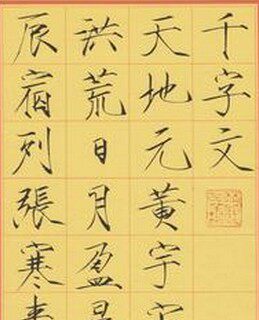 千字文
天地元黄宇
洪荒日月盈
辰宿列張寒